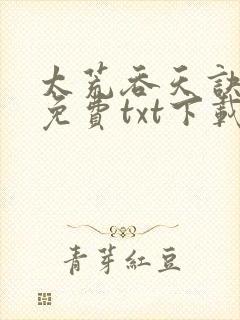 太荒吞天訣
免費txt下載
青芽紅豆